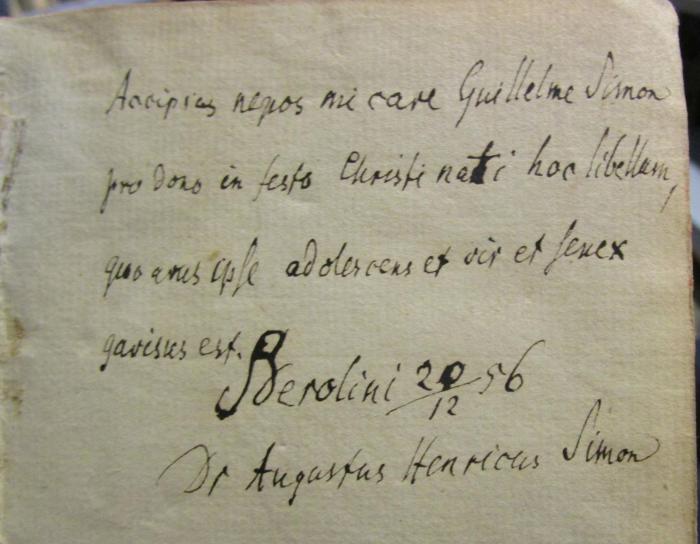 Accipias nepos mi care Guillelme Simon
pro dono in festo Christi nati hoc libellum,
quo avus ipse adolescens et vir et senex
gavisus est.
Berolini 20/12 56
Dr Augustus Henricus Simon